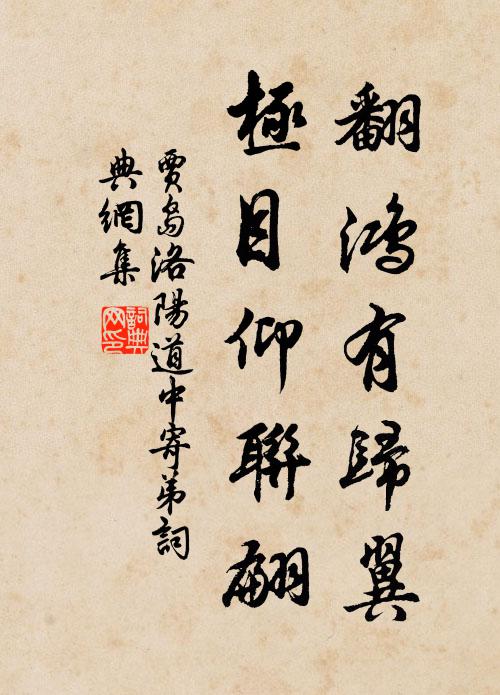 翻鴻有歸翼
極目仰聯翩
賈島洛陽道中寄弟詞
典網集
詞典
网印